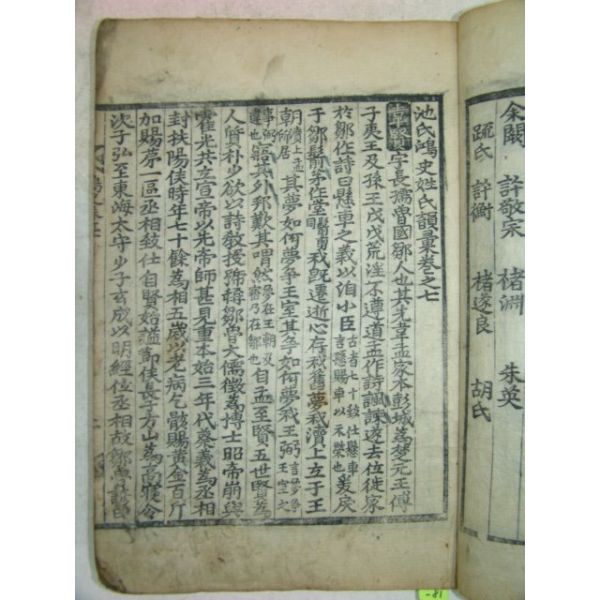 余闕 許敬宗 楮淵 朱英
䟽氏 許衡 楮遂良 胡氏
池氏鴻史姓氏韻彙卷之七
韋賢字長孺魯國鄒人也其先韋孟家本彭城為楚元王傅
子夷王及孫王戊戊荒淫不遵道孟作詩諷諫遂去位徙家
於鄒作詩曰懸車之義以洎小臣古者七十致仕懸車言懸賜車以示榮也爰戾
于鄒鬋茅作堂我既遷逝心存我舊夢我瀆上立于王
朝其夢如何夢爭王室其爭如何夢我王弼言夢爭王室之
事弼違也寤其外邦歎其喟然夢在王朝及寤乃在鄒也自孟至賢五世賢為
人質朴少欲以詩敎授號稱鄒魯大儒徵為博士昭帝崩與
霍光共立宣帝以先帝師甚見重本始三年代蔡義為丞相
封扶陽侯時年七十餘為相五歲以老病乞骸賜黃金百斤
加賜第一區丞相致仕自賢始謚節侯長子方山為高寢令
次子弘至東海太守少子玄成以明經位丞相故鄒魯諺曰
-81